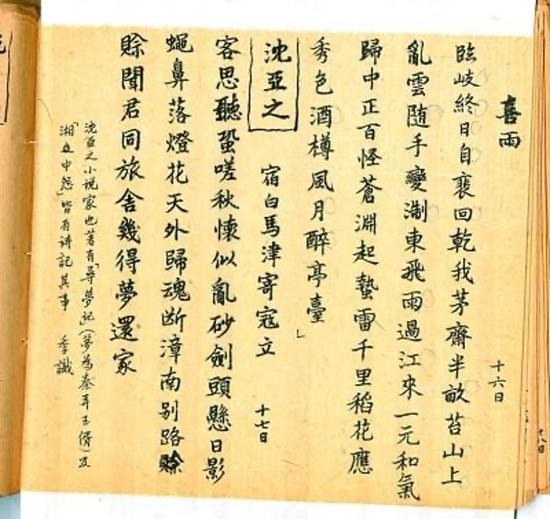 喜雨
十六日
臨岐終日自裵回乾我茅齋半畝苔山上
亂雲随手變淛東飛雨過江來一元和氣
歸中正百怪蒼淵起蟄雷千里稻花應
秀色酒樽風月醉亭臺」
沈亞之
宿白馬津寄寇立
十七日
客思聽蛩嗟秋懷似亂砂劍頭懸日影
蠅鼻落燈花天外歸魂断漳南别路賒
賒聞君同旅舍幾得夢還家
沈亞之小説家也著有「尋夢記」(夢為秦弄玉婿)及
「湘中怨」皆有詩記其事 季識
十八日